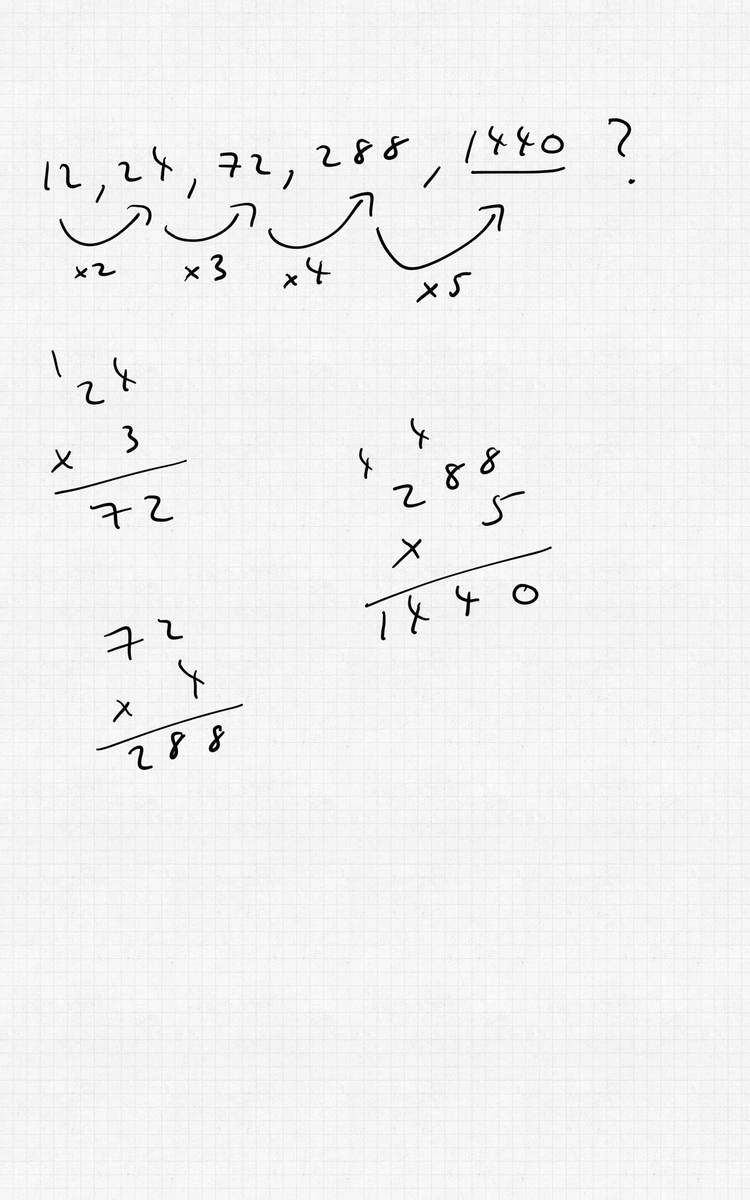 12, 24, 72, 288, 1440 ?
x2 x3 x4 x5
1
24
x 3
72
4 4
288
5
x
1440
72
4
x
288